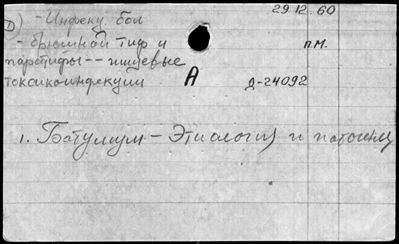 29 12 60
1) - Инфекц. бол
- брюшной тиф и
п.м.
паратифы -- пищевые
токсикоинфекции
А
Д-24092
1. Ботулизм - Этиология и патогенез